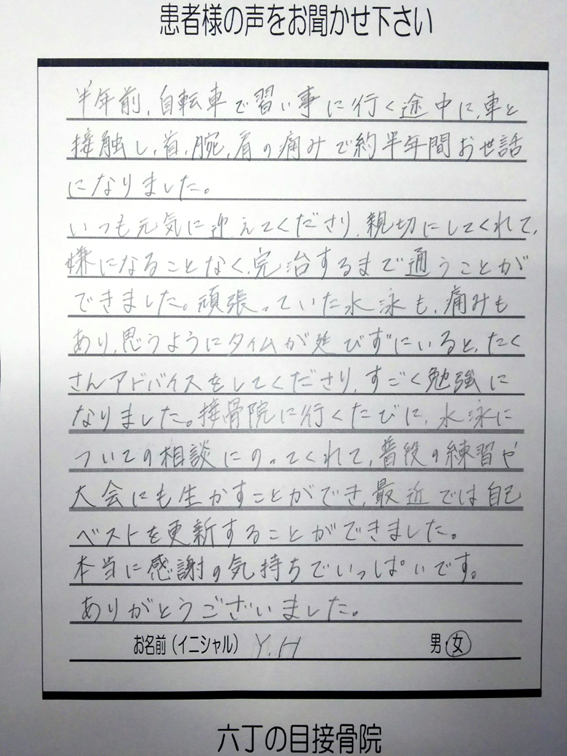 患者様の声をお聞かせ下さい
半年前、自転車で習い事に行く途中に、車と
接触し、首、腕、肩の痛みで約半年間お世話
になりました。
いつも元気に迎えてくださり、親切にしてくれて、
嫌になることなく、完治するまで通うことが
できました。頑張っていた水泳も、痛みも
あり、思うようにタイムが延びずにいると、たく
さんアドバイスをしてくださり、すごく勉強に
なりました。接骨院に行くたびに、水泳に
ついての相談にのってくれて、普段の練習や
大会にも生かすことができ、最近では自己
ベストを更新することができました。
本当に感謝の気持ちでいっぱいです。
ありがとうございました。
お名前(イニシャル) Y.H 男 女
六丁の目接骨院